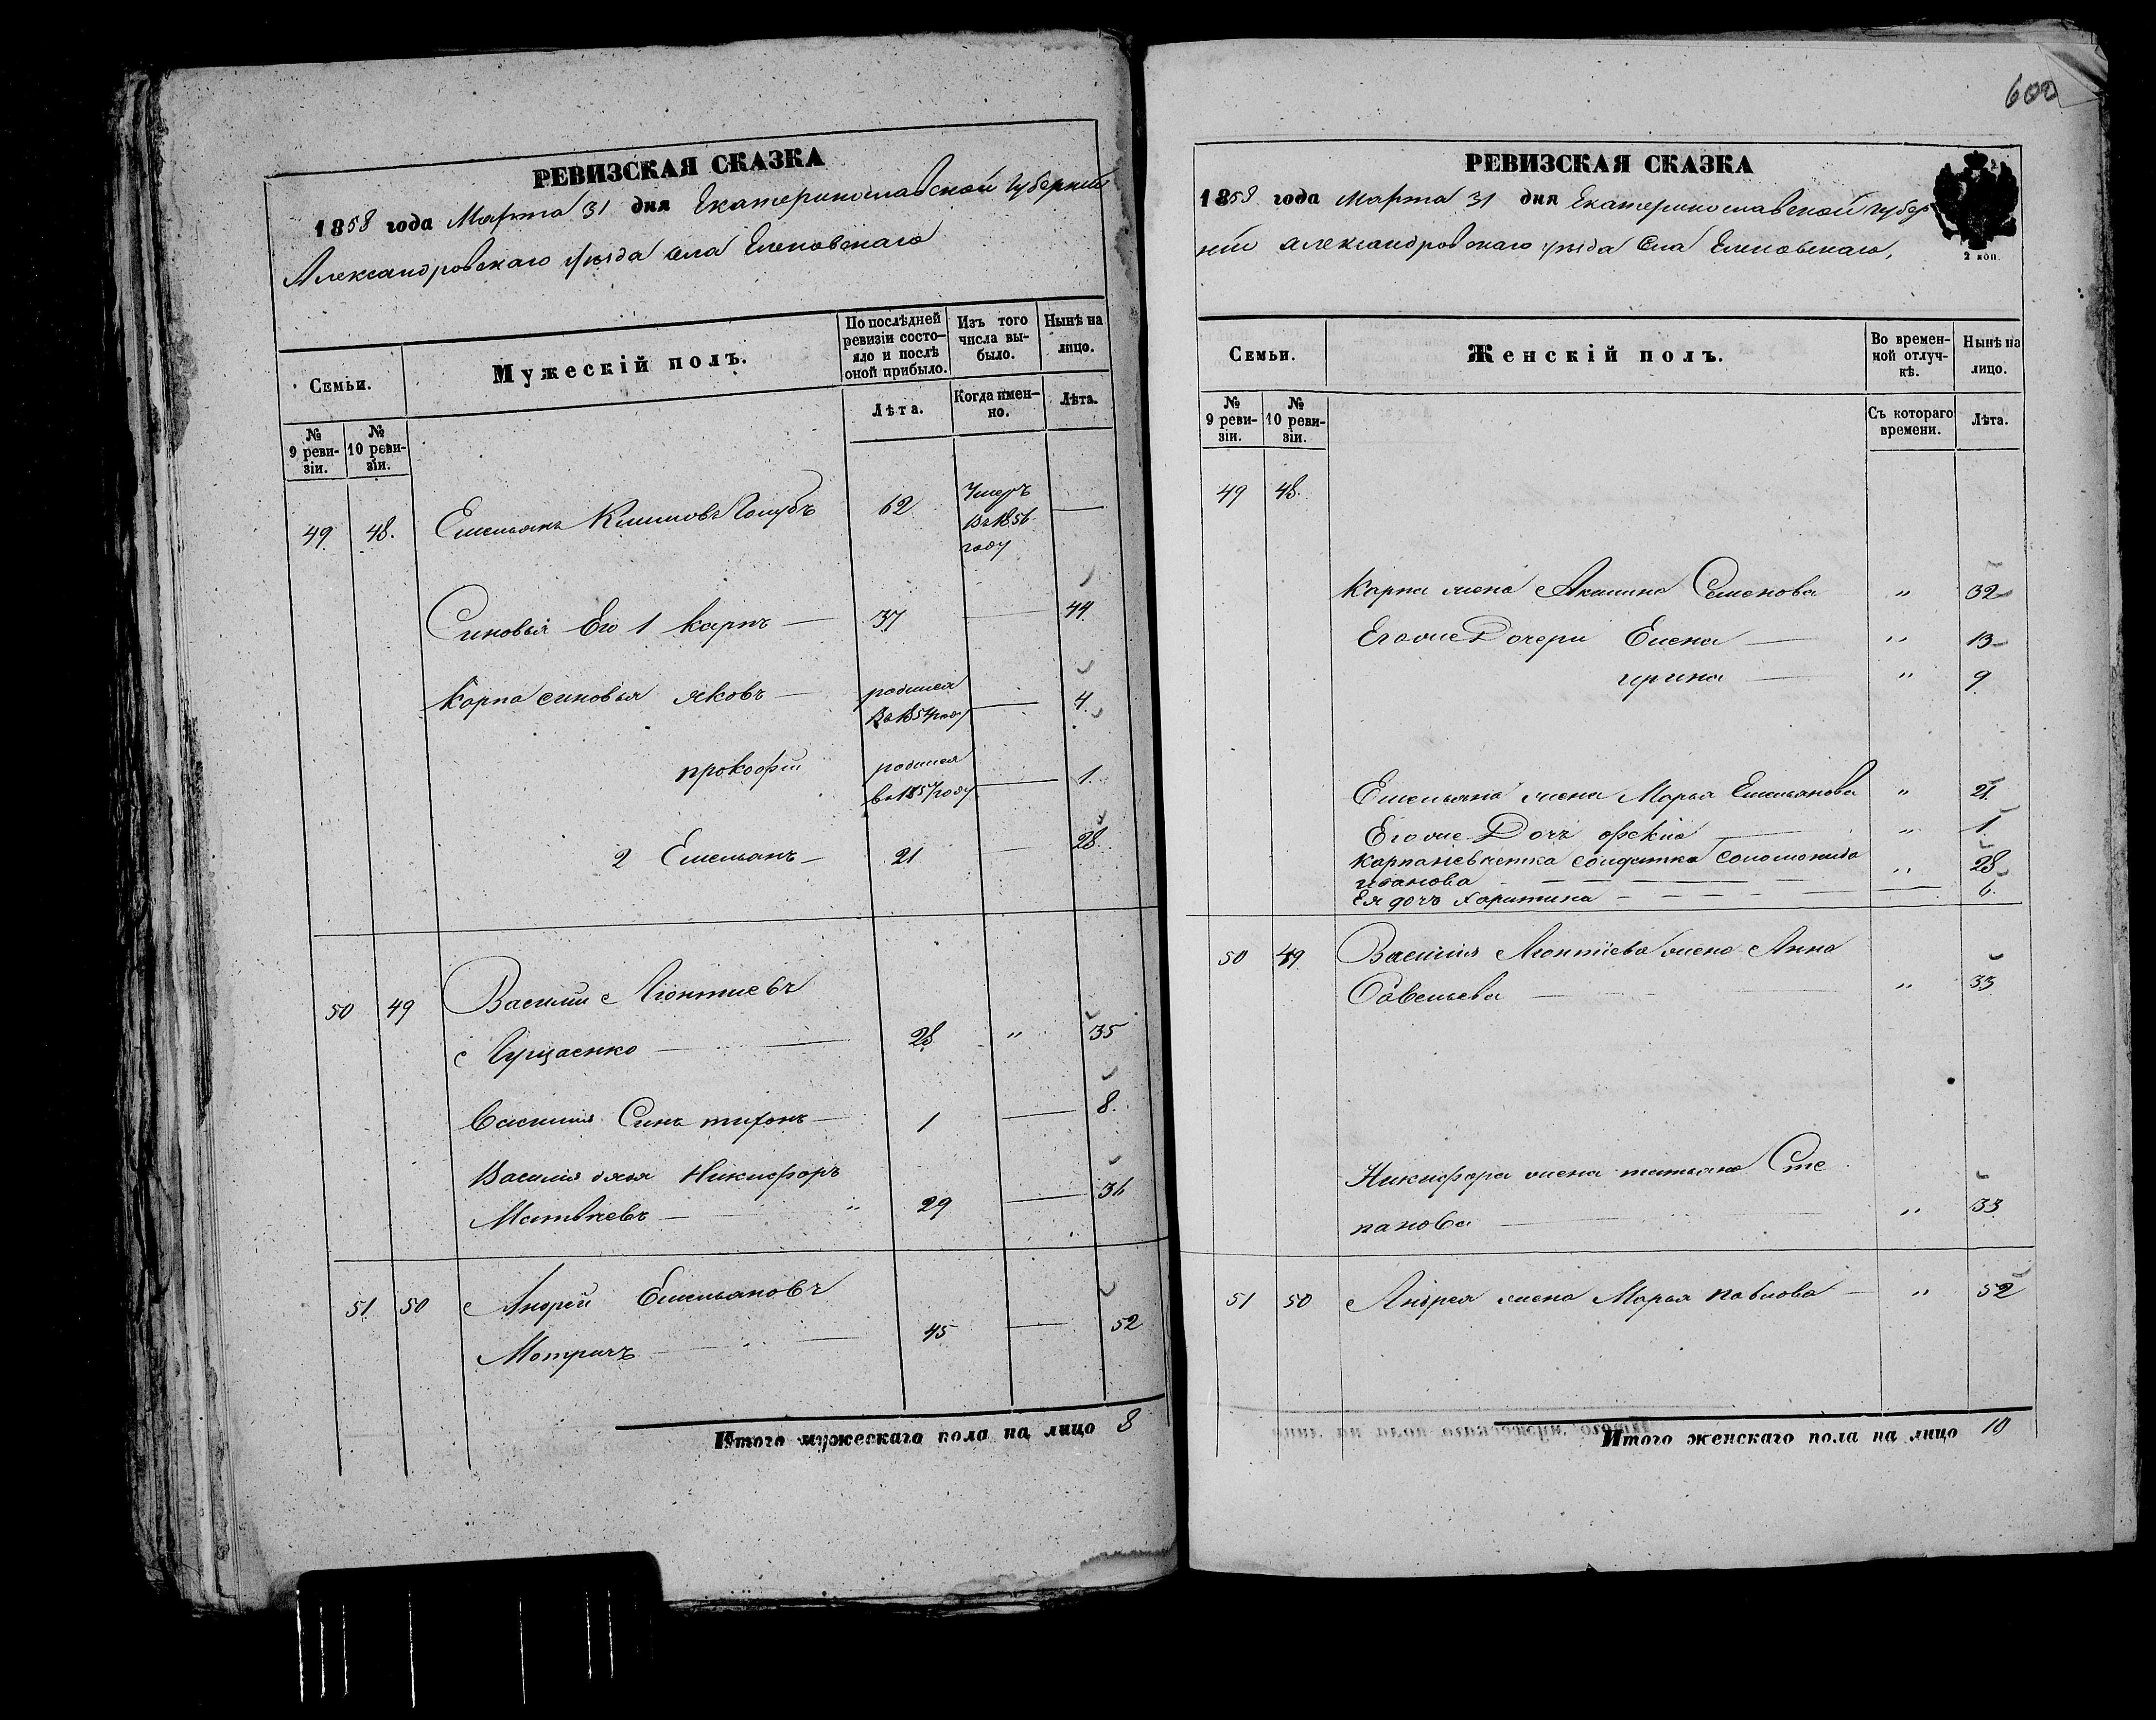 РЕВИЗСКАЯ СКАЗКА
1858 года Марта 31 дня Екатеринославской Губерніи
Александровскаго уѣзда села Еленовскаго
Семьи.
Мужескій полъ.
По послѣдней ревизіи состояло и послѣ оной прибыло.
Изъ того числа выбыло.
Нынѣ на лицо.
Лѣта.
Когда именно.
Лѣта.
№ 9 ревизіи.
№ 10 ревизіи.
49 48. Емельянъ Климовъ Голубъ 62 Умеръ
В 1856
году
Синовья Его 1 карпъ 37 44
Карпа синовья яковъ родился 4
В 1854 году
прокофий родился 1.
в 1857 году
2 Емельянъ 21 28
50 49 Василий Леонтиевъ
Луцаенко 28 " 35
Василия Синъ тихонъ 1 8.
Василия дядя Никифоръ
Матвиевъ " 29 36
51 50 Андрей Емельяновъ
Мотричъ 45 52
Итого мужескаго пола на лицо 8
600
РЕВИЗСКАЯ СКАЗКА
1858 года Марта 31 дня Екатеринославской Губер
ніи Александровскаго уѣзда Села Еленовскаго,
2 коп.
Семьи.
Женскій полъ.
Во временной отлучкѣ.
Нынѣ на лицо.
№ 9 ревизіи.
№ 10 ревизіи.
Съ котораго времени.
Лѣта.
49 48.
Карпа жена Акилина Семенова " 32
Егоже Дочери Елена " 13
ирина " 9
Емельяна жена Марья Емельянова " 21
Егоже Дочъ " 1
Карпа невистка солдатка соломонида
иванова " 28
Ея дочъ харитина 6.
50 49 Василия Леонтіева жена Анна
Савельева " 33
Никифора жена татьяна Сте
панова " 33
51 50 Андрея жена Марья павлова " 52
Итого женскаго пола на лицо 10